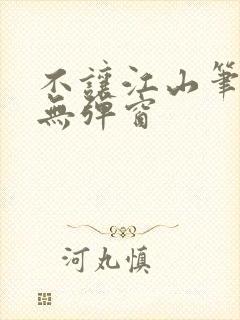 不讓江山筆
無彈窗
河丸慎